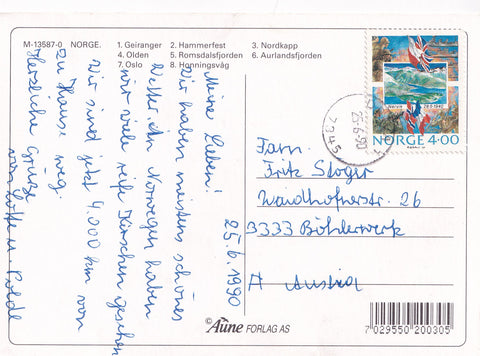 M-13587-0 NORGE.
1. Geiranger 2. Hammerfest 3. Nordkapp
4. Olden 5. Romsdalsfjorden 6. Aurlandsfjorden
7. Oslo 8. Honningsvåg
Meine Lieben!
Wir haben meistens schönes
Wetter. In Norwegen haben
wir viele reife Kirschen gesehen
Wir sind jetzt 4.000 km von
zu Hause weg.
Herzliche Grüße
von Lotte u. Poldi
25.6.1990
Narvik 28.5.1940
NORGE 4.00
25.6.90
7345
Fam.
Fritz Stoger
Waidhofnerstr. 26
3333 Böhlerwerk
A Austria
© Aune FORLAG AS
7 029550 200305